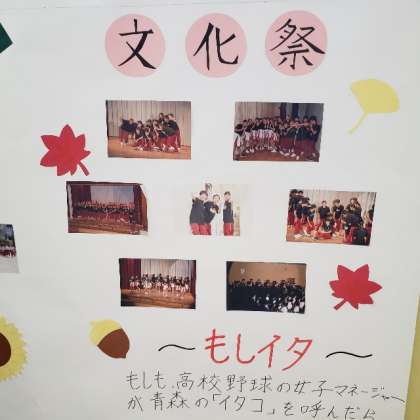 文化祭
～もしイタ～
もしも、高校野球の女子マネージャー
が青森の「イタコ」を呼んだら